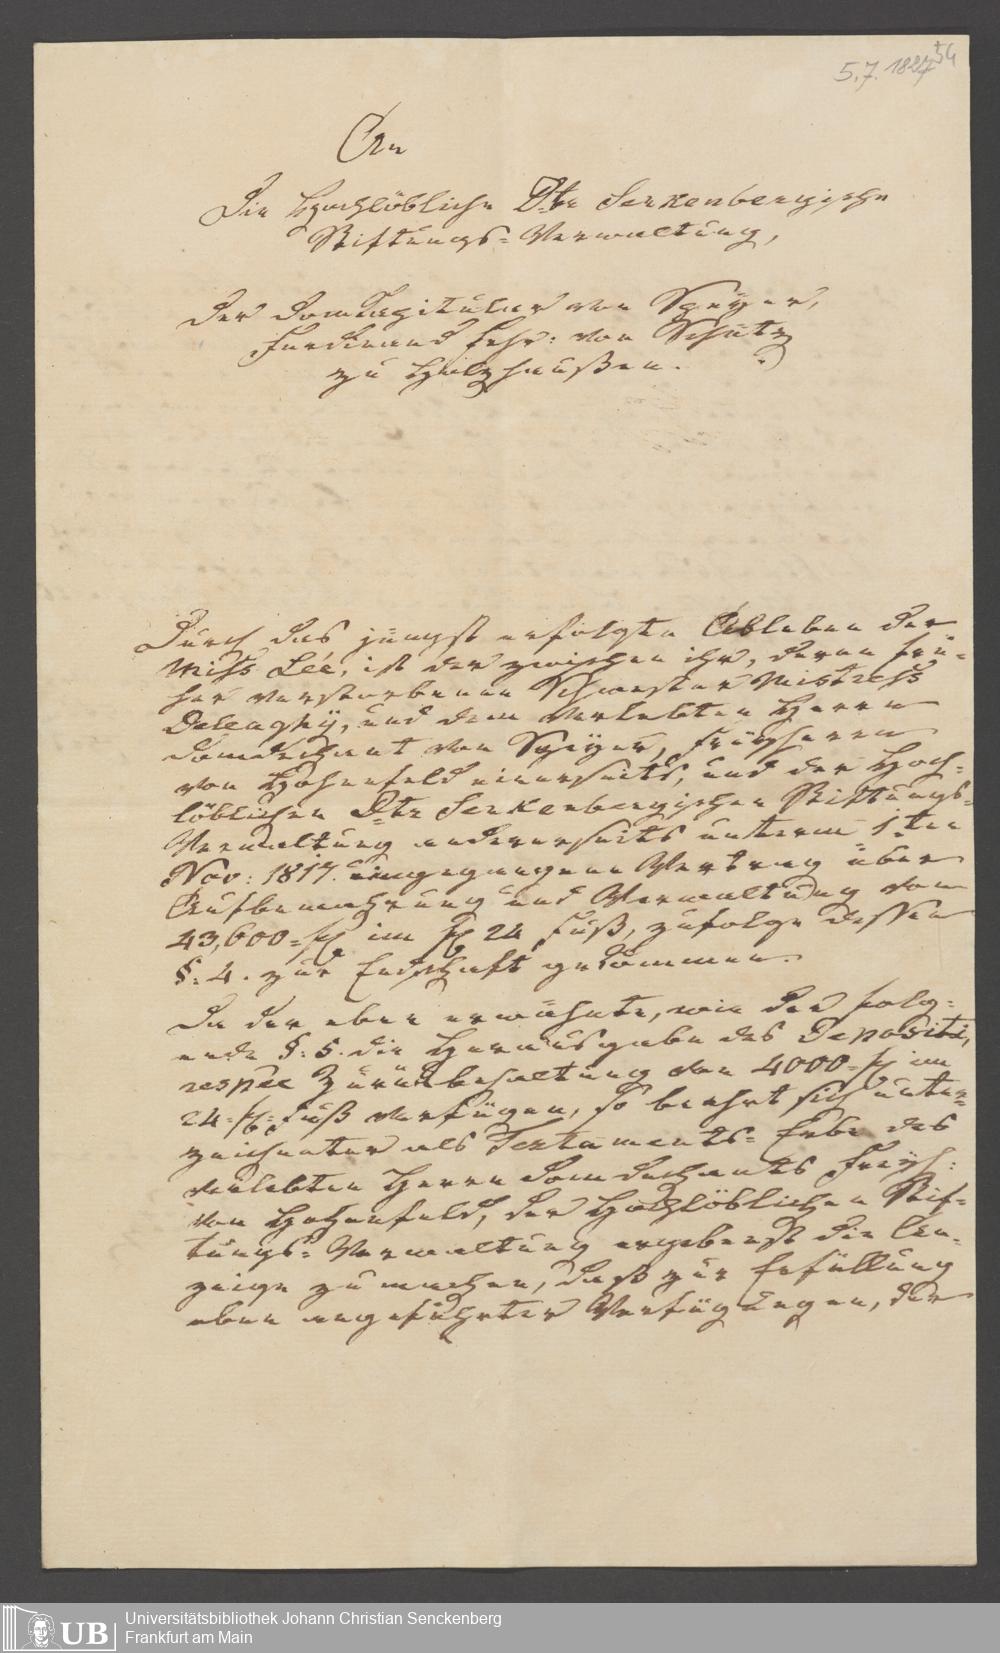 5.7.1827
54
An
Die Hochlöbliche Dr. Senkenbergische
Stiftungs-Verwaltung,
Der Domkapitular von Speyer,
Ferdinand Frhr: von Schütz
zu Holzhaußen.
Durch das jüngst erfolgte Ableben der
Miss Lée, ist der zwischen ihr, deren frü-
her verstorbenen Schwester Mistress
Delenghÿ, und dem verlebten Herrn
Domdechant von Speÿer, Freÿherrn
von Hohenfeld einerseits, und der Hoch-
löblichen Dr. Senkenbergischen Stiftungs-
Verwaltung andererseits unterm 1ten
Nov: 1817. eingegangene Vertrag über
Aufbewahrung und Verwaltung von
43,600 = fl im fl 24 Fuß, zufolge dessen
§: 4. zur Endschaft gekommen.
Da der eben erwähnte, wie der folg-
ende §: 5. die Herausgabe des Depositi,
respée Zurückbehaltung von 4000 = fl im
24-fl-Fuß verfügen, so beehrt sich unter-
zeichneter als Testaments-Erbe des
verlebten Herrn Domdechants Freÿh:
von Hohenfeld, der Hochlöblichen Stif-
tungs-Verwaltung ergebenst die An-
zeige zu machen, daß zur Erfüllung
oben angeführter Verfügungen, der
UB
Universitätsbibliothek Johann Christian Senckenberg
Frankfurt am Main